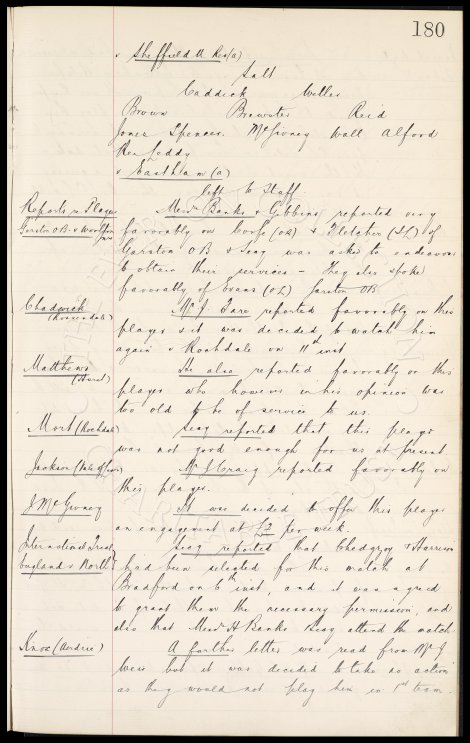 180
v Sheffield U Res (a)
Salt
Caddick Weller
Brown Brewster Reid
Jones Spencer McGivney Wall Alford
Res Leddy
v Eastham (a)
left to Staff
Reports re Players
Garston OB v Woolton
Messrs Banks & Gibbins reported very
favorably on (OR) & Fletcher (IL) of
Garston OB & Secy was asked to endeavour
to obtain their services - They also spoke
favorably of Evans (OL) Garston OB
Chadwick
(Rossendale)
Mr J. Fare reported favorably on this
player & it was decided to watch him
again v Rochdale on 11th inst
Matthews
(Hurst)
He also reported favorably on this
player who however in his opinion was
too old to be of service to us.
Mort (Rochdale)
Secy reported that this player
was not good enough for us at present
Jackson (Vale of Leven)
Mr J Craig reported favorably on
this player.
J McGivney
It was decided to offer this player
an engagement at £2 per week.
International Trial
England v North
Secy reported that Chedgzoy & Harrison
had been selected for this match at
Bradford on 6th inst, and it was agreed
to grant them the necessary permission, and
also that Messrs H Banks Secy attend the match
Knox (Airdrie)
A further letter was read from Mr J
Weir but it was decided to take no action
as they would not play him in 1st team.